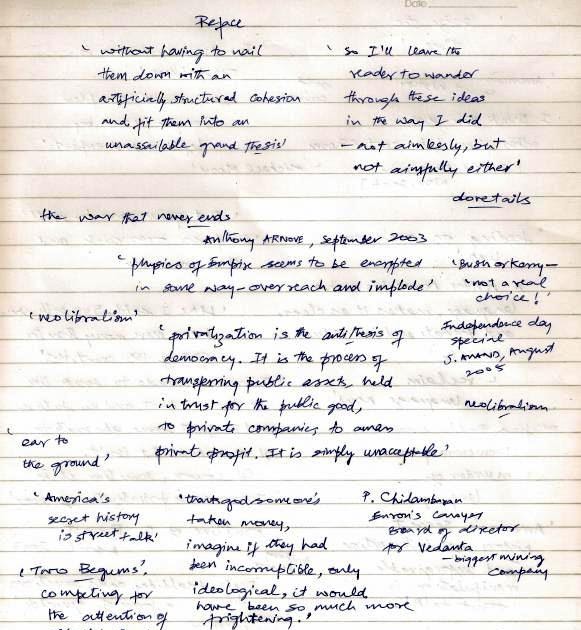 Date
Preface
' without having to nail
them down with an
artificially structured cohesion
and fit them into an
unassailable grand thesis'
' so I'll leave the
reader to wander
through these ideas
in the way I did
- not aimlessly, but
not aimfully either'
dovetails
the war that never ends
Anthony ARNOVE, September 2003
' physics of Empire seems to be encrypted
in some way - over reach and implode'
'Bush or Kerry -
'not a real
choice!'
'neolibralism'
' privatization is the antithesis of
democracy. It is the process of
transferring public assets, held
in trust for the public good,
to private companies to amass
private profit. It is simply unacceptable'
Independence day
special
S. ANAND, August
2005
neolibralism
' ear to
the ground'
' America's
secret history
is street talk'
'thank god someone's
taken money,
imagine if they had
been incorruptible, only
ideological, it would
have been so much more
frightening.'
P. Chidambaran
Enron's lawyer
Board of director
for Vedanta
- biggest mining
Company
' Two Begums'
competing for
the attention of